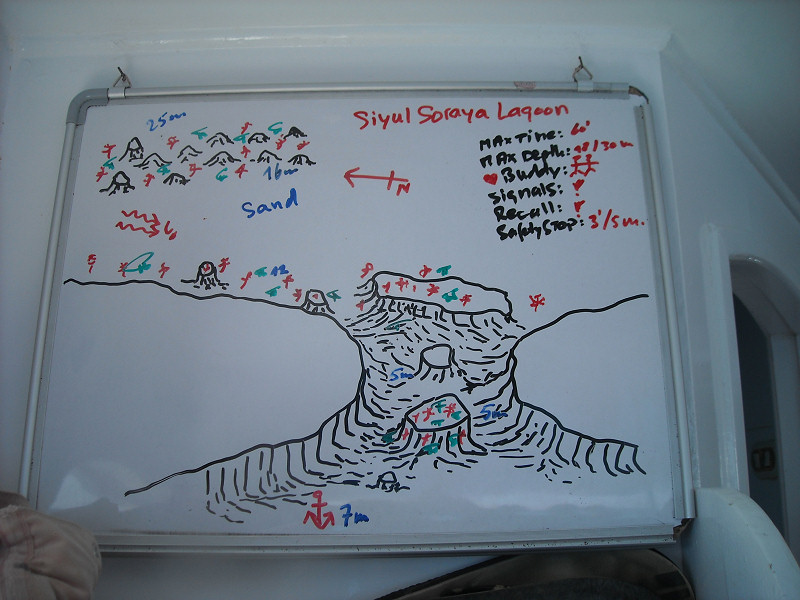 Siyul Soraya Lagoon
25m
MAX Time: 60'
MAX Depth: 98'/30m
Buddy:
Signals: !
Recall: !
Safety Stop: 3'/5m.
16m
N
Sand
12
5m
5m
7m